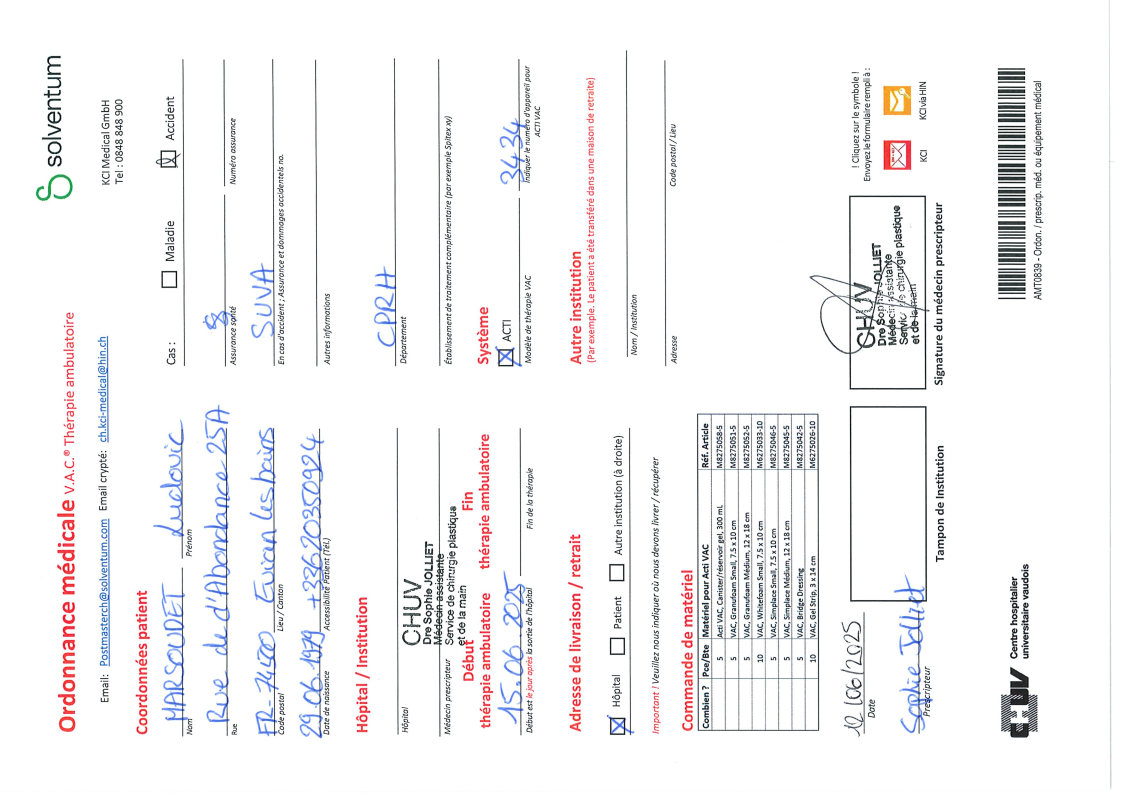 solventum
Ordonnance médicale V.A.C.® Thérapie ambulatoire
KCI Medical GmbH
Tel : 0848 848 900
Email: Postmasterch@solventum.com Email crypté: ch.kci-medical@hin.ch
Coordonnées patient
Cas : Maladie Accident
MARSOUDET Ludovic
Nom Prénom
Assurance santé Numéro assurance
Rue de d'Abondance 25A
Rue
SUVA
En cas d'accident : Assurance et dommages accidentels no.
FR-74500 Evian les bains
Code postal Lieu / Canton
Autres informations
29.06.1979 +33620350924
Date de naissance Accessibilité Patient (Tél.)
Hôpital / Institution
CPRH
Département
CHUV
Dre Sophie JOLLIET
Médecin assistante
Service de chirurgie plastique
et de la main
Hôpital
Médecin prescripteur
Établissement de traitement complémentaire (par exemple Spitex xy)
Début
thérapie ambulatoire
Fin
thérapie ambulatoire
Système
ACTI
3434
15.06 2025
Début est le jour après la sortie de l'hôpital)
Fin de la thérapie
Modèle de thérapie VAC
Indiquer le numéro d'appareil pour
ACTI VAC
Adresse de livraison / retrait
Hôpital Patient Autre institution (à droite)
Important ! Veuillez nous indiquer où nous devons livrer / récupérer
Autre institution
(Par exemple. Le patient a été transféré dans une maison de retraite)
Nom / Institution
Adresse Code postal / Lieu
Commande de matériel
Combien ? Pce/Bte Matériel pour Acti VAC Réf. Article
5 Acti VAC, Canister/réservoir gel, 300 mL M8275058-5
5 VAC, Granufoam Small, 7.5 x 10 cm M8275051-5
5 VAC, Granufoam Médium, 12 x 18 cm M8275052-5
10 VAC, Whitefoam Small, 7.5 x 10 cm M6275033-10
5 VAC, Simplace Small, 7.5 x 10 cm M8275046-5
5 VAC, Simplace Médium, 12 x 18 cm M8275045-5
5 VAC, Bridge Dressing M8275042-5
10 VAC, Gel Strip, 3 x 14 cm M6275026-10
12/06/2025
Date
Sophie Jolliet
Prescripteur
Tampon de Institution
CHUV
Dre Sophie JOLLIET
Médecin assistante
Service de chirurgie plastique
et de la main
Signature du médecin prescripteur
! Cliquez sur le symbole !
Envoyez le formulaire rempli à :
KCI KCI via HIN
CHUV Centre hospitalier
universitaire vaudois
AMT0839 - Ordon. / prescrip. méd. ou équipement médical